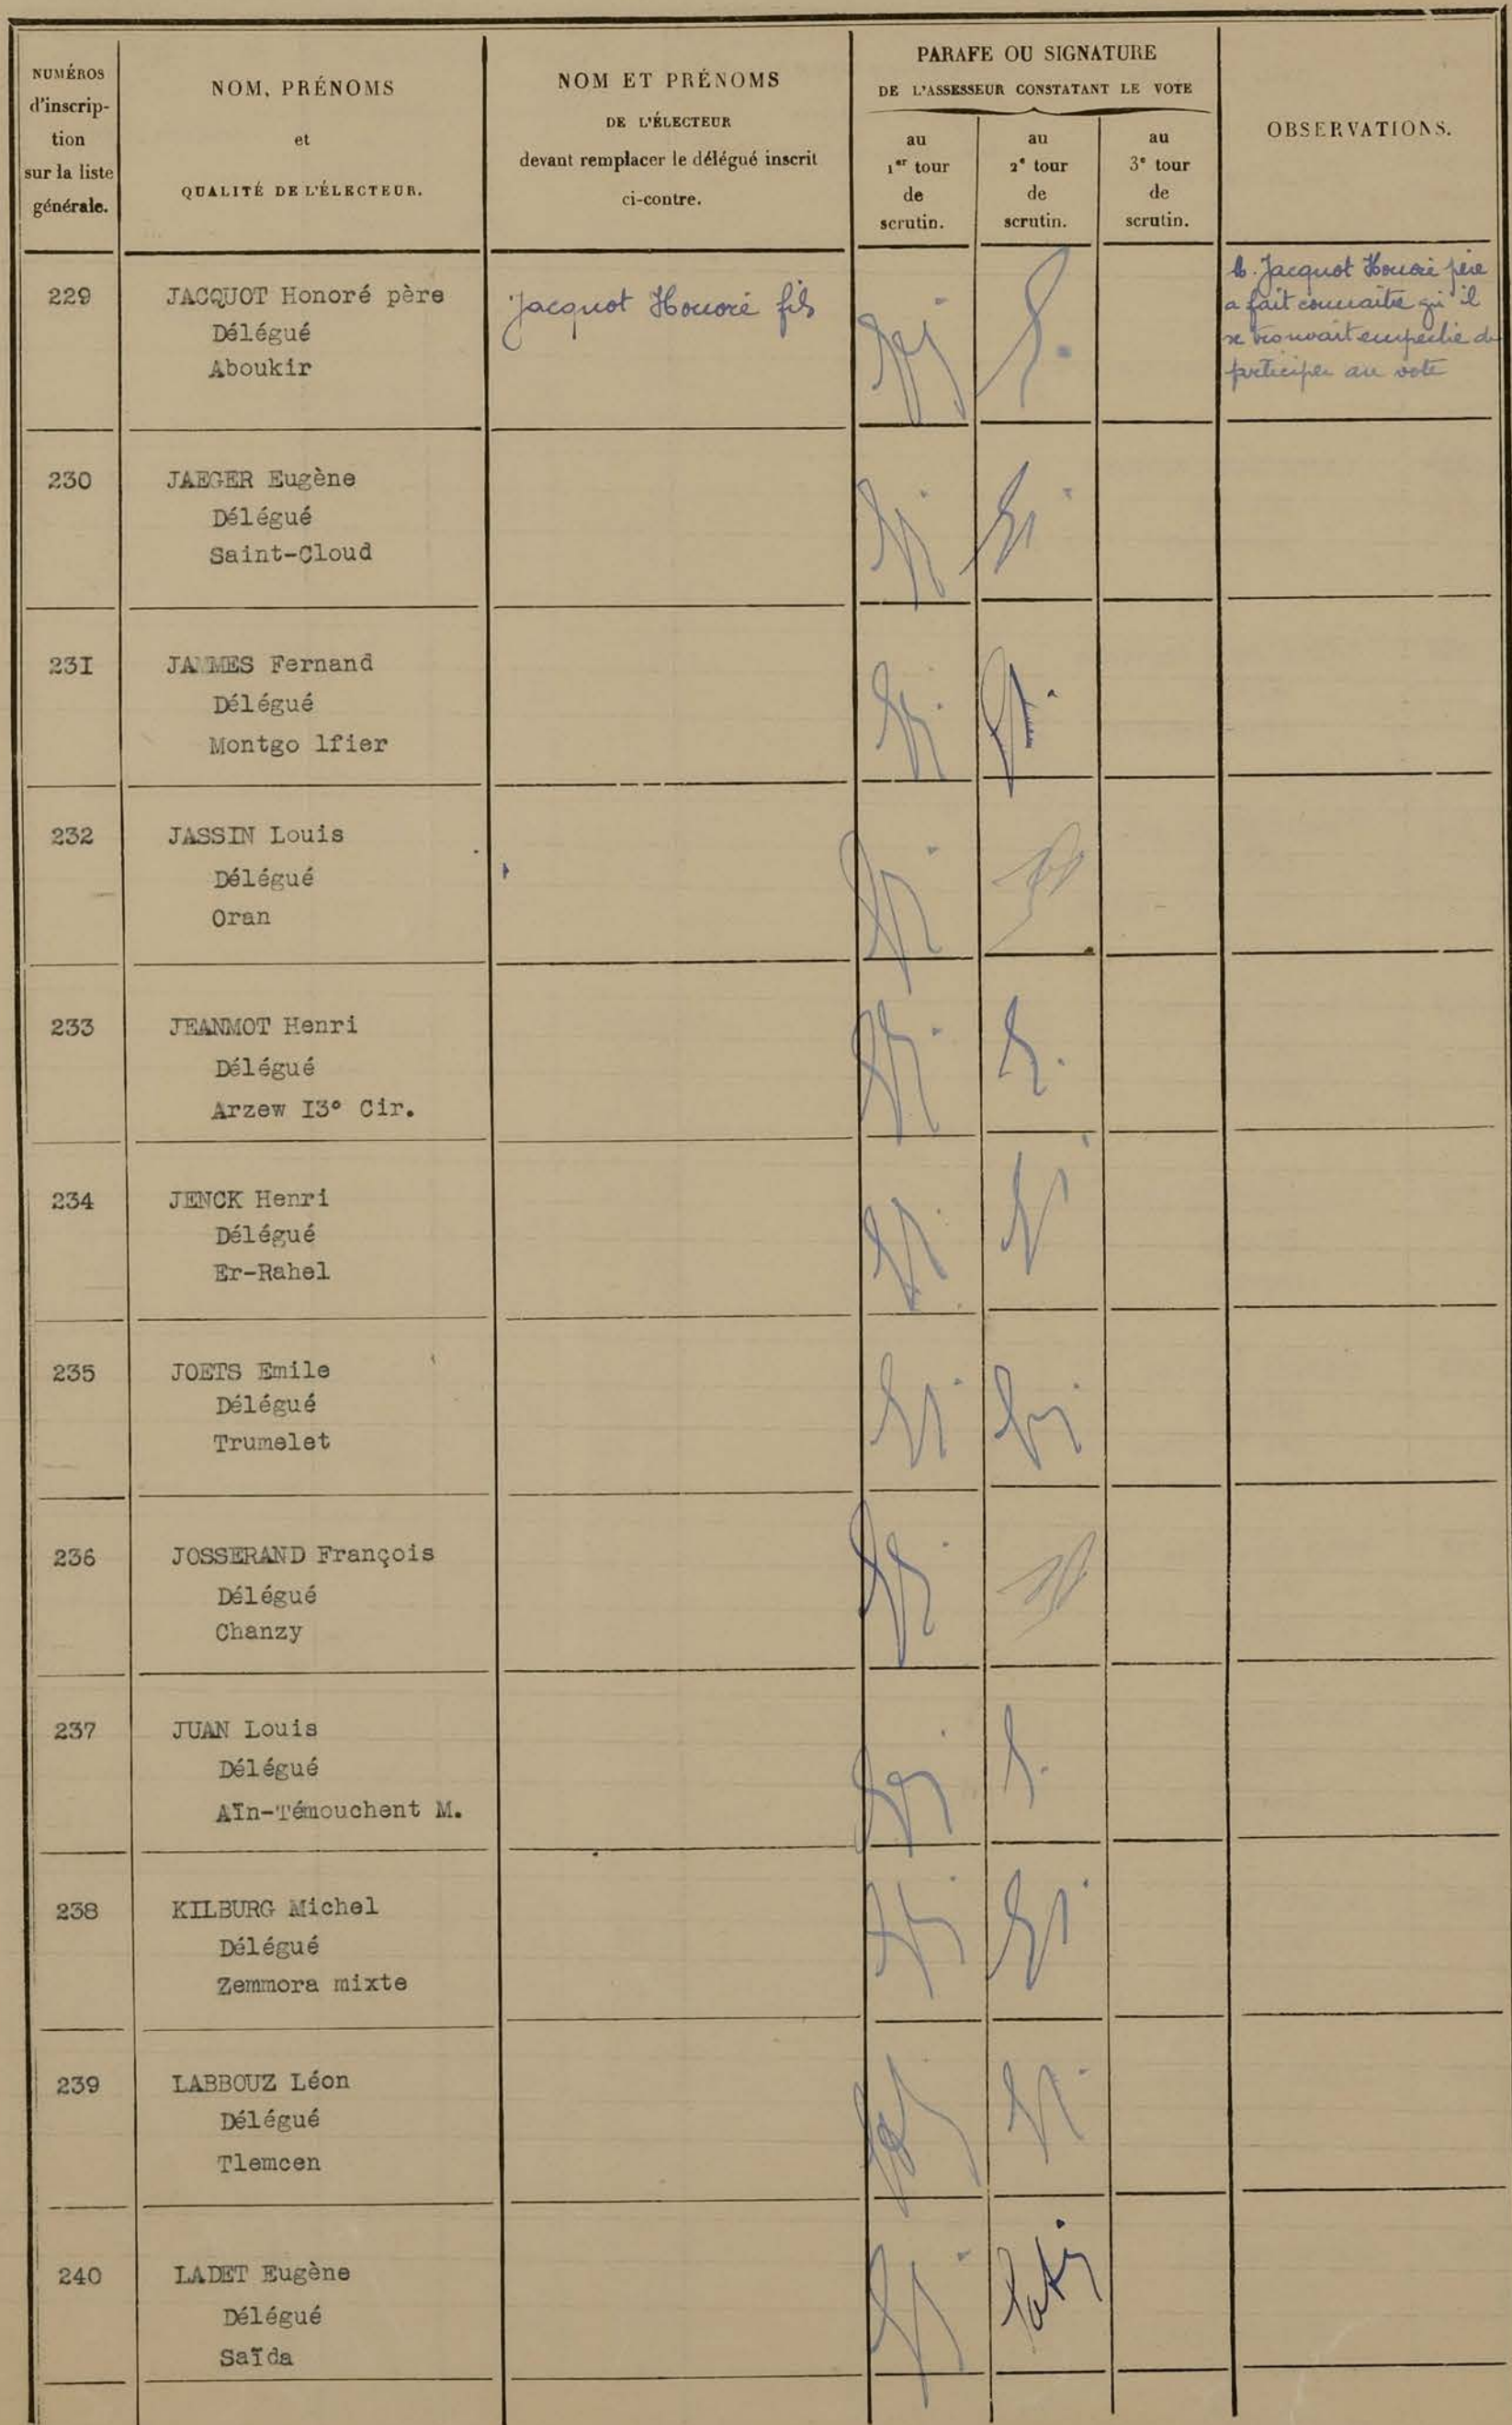 NUMÉROS
d'inscrip-
tion
sur la liste
générale.
NOM, PRÉNOMS
et
QUALITÉ DE L'ÉLECTEUR.
NOM ET PRÉNOMS
DE L'ÉLECTEUR
devant remplacer le délégué inscrit
ci-contre.
PARAFE OU SIGNATURE
DE L'ASSESSEUR CONSTATANT LE VOTE
au
1er tour
de
scrutin.
au
2e tour
de
scrutin.
au
3e tour
de
scrutin.
OBSERVATIONS.
229
JACQUOT Honoré père
Délégué
Aboukir
Jacquot Honoré fils
M. Jacquot Honoré père
a fait connaitre qu'il
se trouvait empêché de
participer au vote
230
JAEGER Eugène
Délégué
Saint-Cloud
231
JAMMES Fernand
Délégué
Montgo lfier
232
JASSIN Louis
Délégué
Oran
233
JEANMOT Henri
Délégué
Arzew I3° Cir.
234
JENCK Henri
Délégué
Er-Rahel
235
JOETS Emile
Délégué
Trumelet
236
JOSSERAND François
Délégué
Chanzy
237
JUAN Louis
Délégué
Aïn-Témouchent M.
238
KILBURG Michel
Délégué
Zemmora mixte
239
LABBOUZ Léon
Délégué
Tlemcen
240
LADET Eugène
Délégué
Saïda